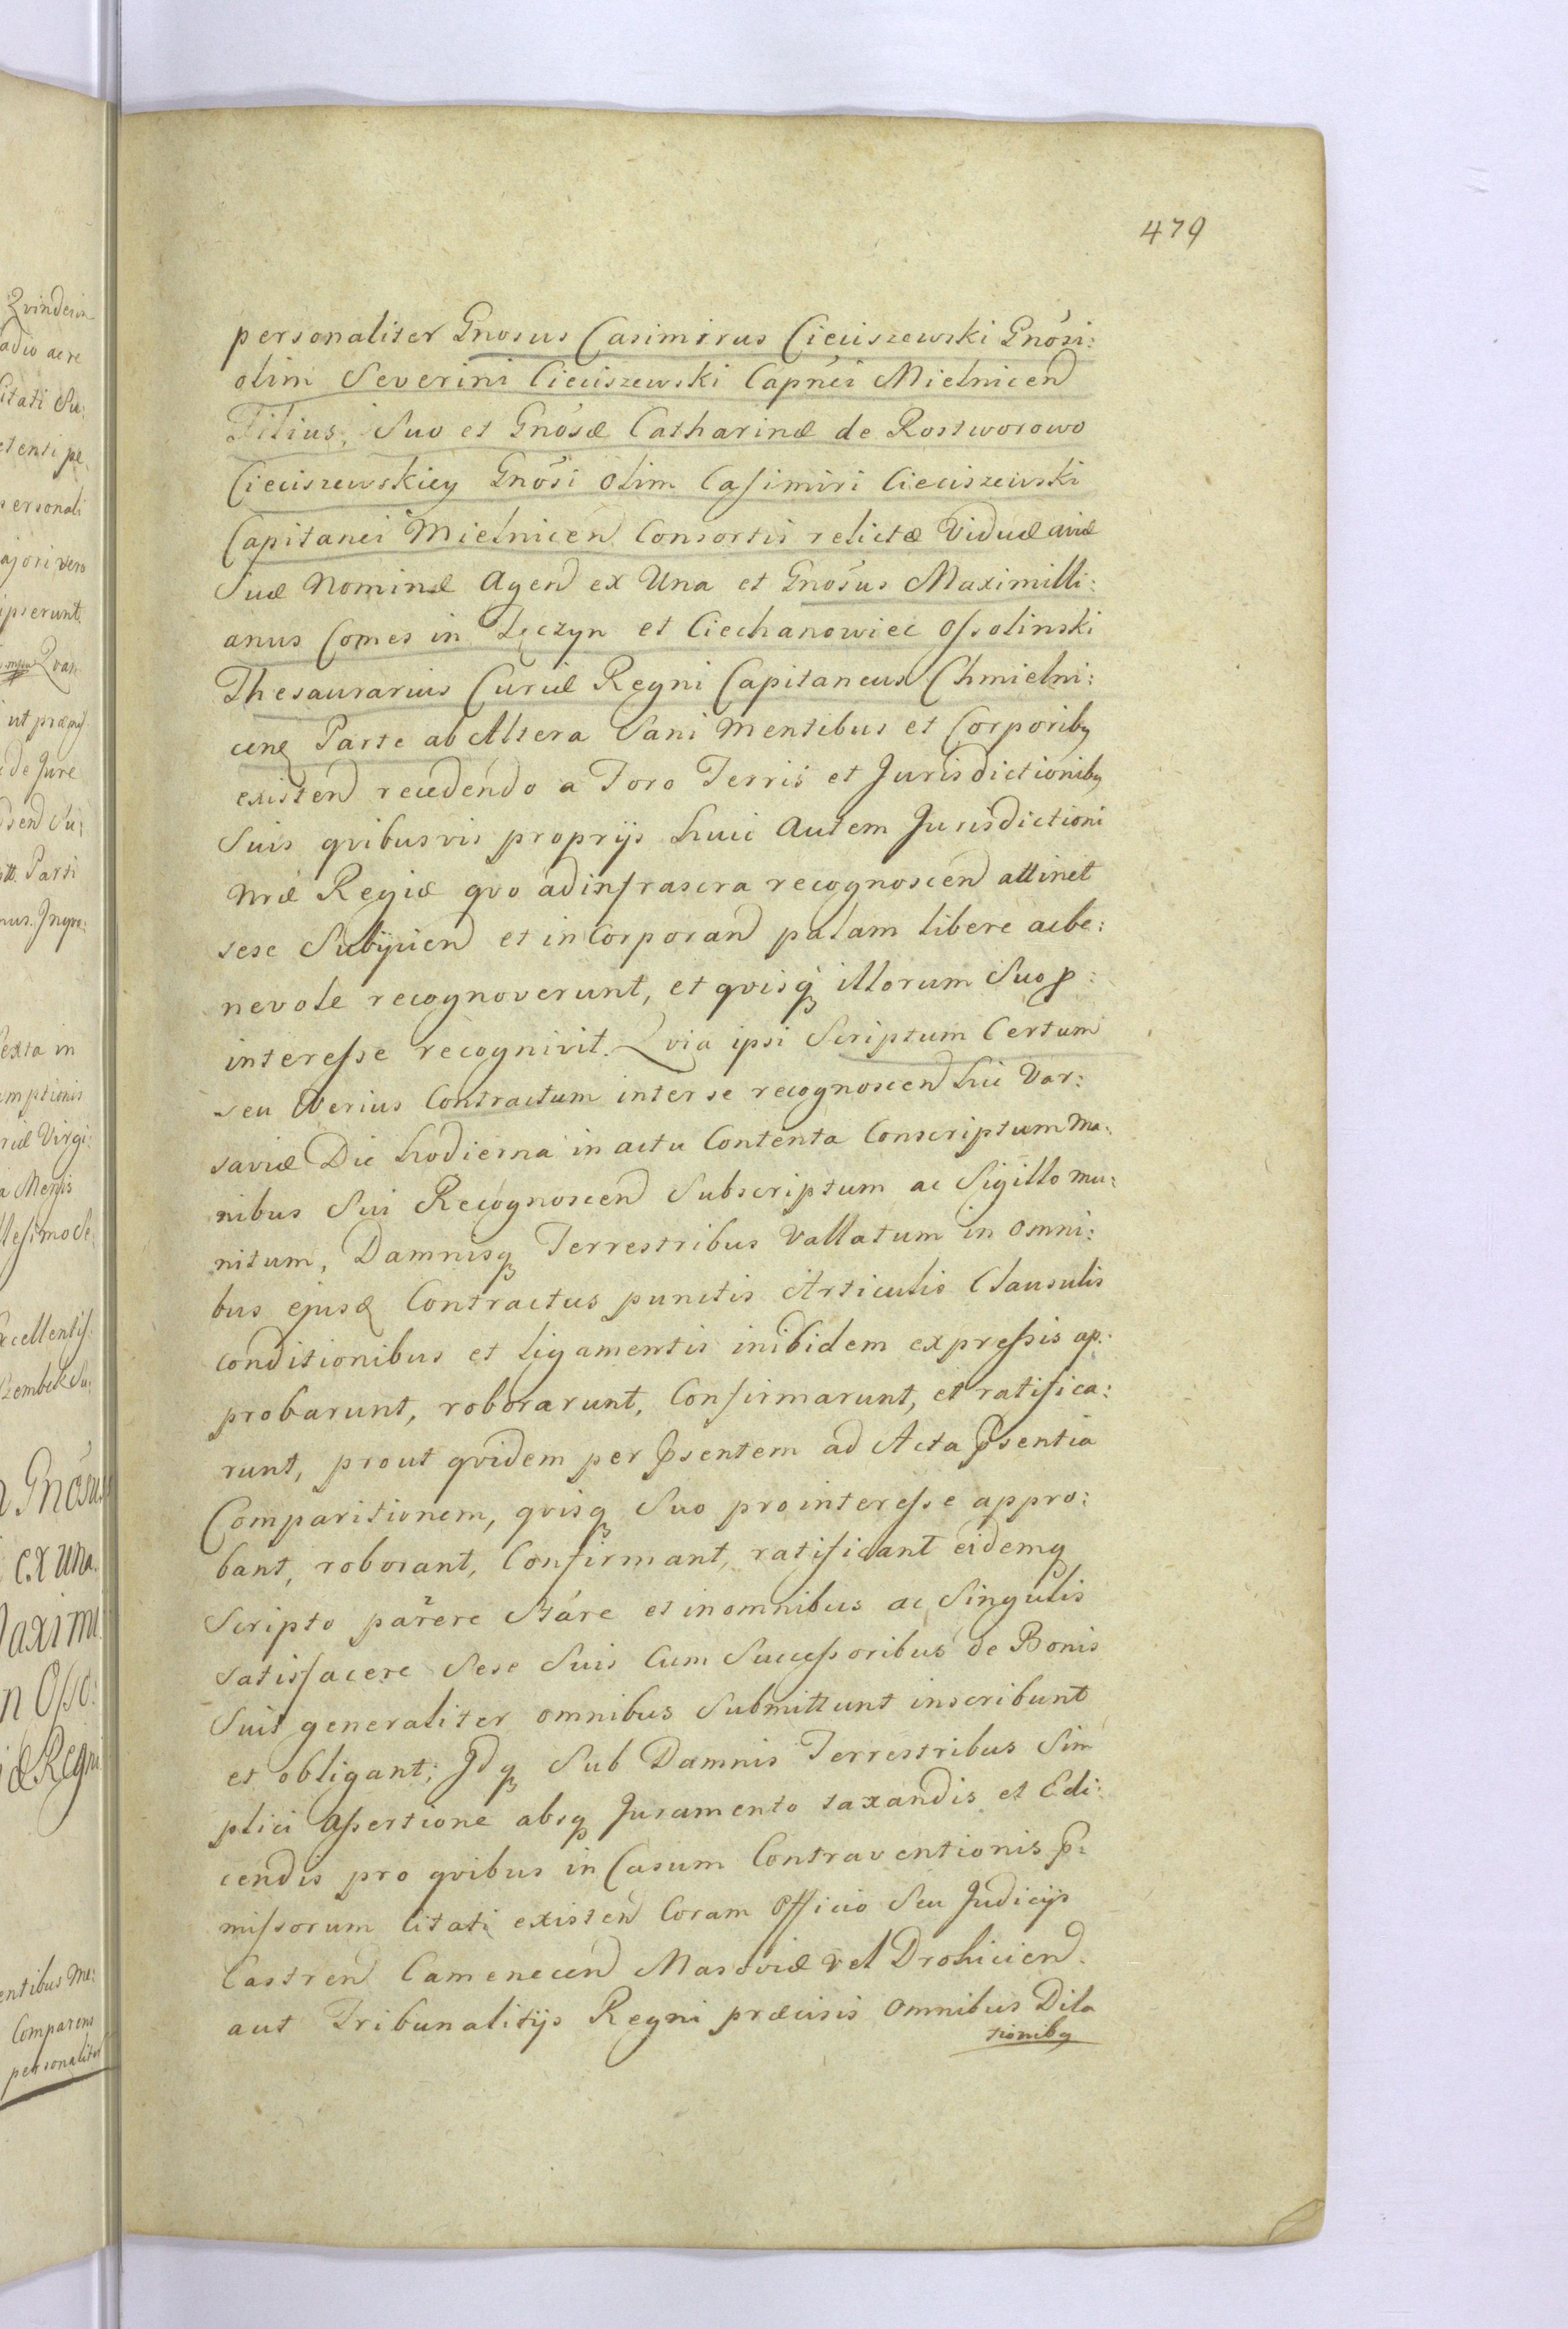 479
personaliter Gnosus Casimirus Cieciszewski Gnosi:
olim Severini Cieciszewski Capnei Mielnicen
Filius, Suo et Gnosæ Catharinæ de Rostworowo
Cieciszewskiey Gnosi olim Casimiri Cieciszewski
Capitanei Mielnicen Consortis relictæ Viduæ aviæ
Suæ Nominæ Agen ex Una et Gnosus Maximilli:
anus Comes in Tęczyn et Ciechanowiec Ossolinski
Thesaurarius Curiæ Regni Capitaneus Chmielni:
cenȩ Parte ab Altera Sani Mentibus et Corporibꝰ
existen recedendo a Foro Terris et Jurisdictionibꝰ
Suis qvibusvis proprijs huic Autem Jurisdictioni
Nræ Regiæ qvo ad infrascra recognoscen attinet
sese Subijcien et incorporan palam libere ac be:
nevole recognoverunt, et qvisqꝫ illorum Suo ꝓ:
interesse recognivit. Qvia ipsi Scriptum Certum
seu Verius Contractum inter se recognoscen hic Var:
saviæ Die hodierna in actu Contenta Conscriptum Ma:
nibus Sui Recognoscen Subscriptum ac Sigillo mu:
nitum, Damnisqꝫ Terrestribus Vallatum in omni:
bus ejusd Contractus punctis Articulis Clausulis
conditionibus et ligamentis inibidem expressis ap:
probarunt, roborarunt, Confirmarunt, et ratifica:
runt, prout qvidem per Psentem ad Acta Psentia
Comparitionem, qvisqꝫ Suo pro interesse appro:
bant, roborant, Confirmant, ratificant eidemqꝫ
Scripto parere Stare et in omnibus ac Singulis
satisfacere Sese Suis Cum Successoribus de Bonis
Suis generaliter omnibus Submittunt inscribunt
et obligant; Jdqꝫ Sub Damnis Terrestribus Sim
plici Assertione absqꝫ Juramento taxandis et Edi:
cendis pro qvibus in Casum Contraventionis P:
missorum Citati existen Coram Officio Seu Judicijs
Castren Camenecen Masoviæ vel Drohicien.
aut Tribunalitijs Regni præcisis omnibus Dila
tionibꝰ